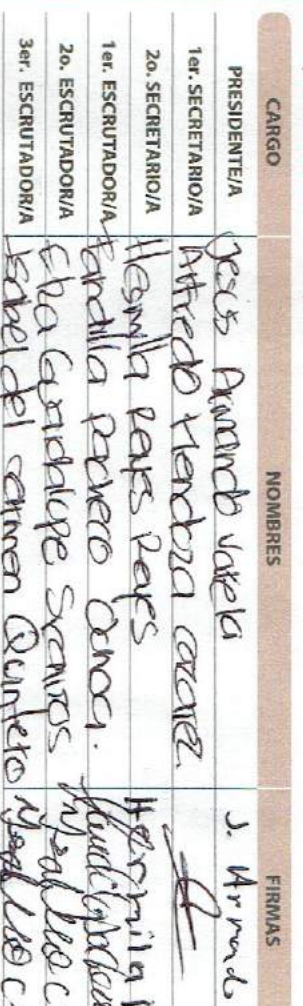 CARGO NOMBRES FIRMAS
PRESIDENTE/A Jesus Armando Varela J. Armado
1er. SECRETARIO/A Alfredo Mendoza
2o. SECRETARIO/A Reyes Reyes
1er. ESCRUTADOR/A Pacheco Ochoa.
2o. ESCRUTADOR/A Guadalupe
3er. ESCRUTADOR/A Isabel del carmen Quintero